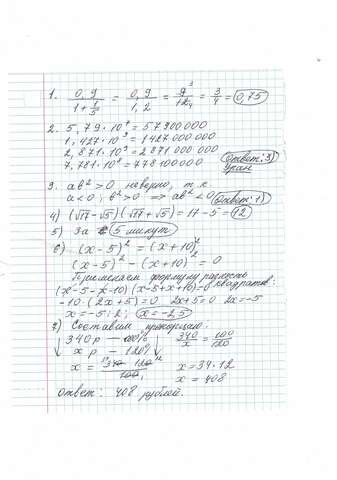 1. 0,9 / (1 + 1/5) = 0,9 / 1,2 = 9 3 / 12 4 = 3/4 = 0,75
2. 5,79·10⁷ = 57 900 000
1,427·10⁹ = 1 427 000 000
2,871·10⁹ = 2 871 000 000
7,781·10⁸ = 778 100 000
Ответ: 3)
Уран
3. ab² > 0 неверно, т.к
a < 0; b² > 0 ⇒ ab² < 0 Ответ: 1)
4) (√17 - √5)(√17 + √5) = 17 - 5 = 12
5) За 5 минут
6) (x - 5)² = (x + 10)²
(x - 5)² - (x + 10)² = 0
Применяем формулу разность
(x - 5 - x - 10)(x - 5 + x + 10) = 0 квадратов:
-10·(2x + 5) = 0 2x + 5 = 0 2x = -5
x = -5 : 2; x = -2,5
7) Составим пропорцию:
340 р — 100% 340/x = 100/120
x р — 120%
x = 340 · 120 12 / 100 x = 34·12
x = 408
ответ: 408 рублей.